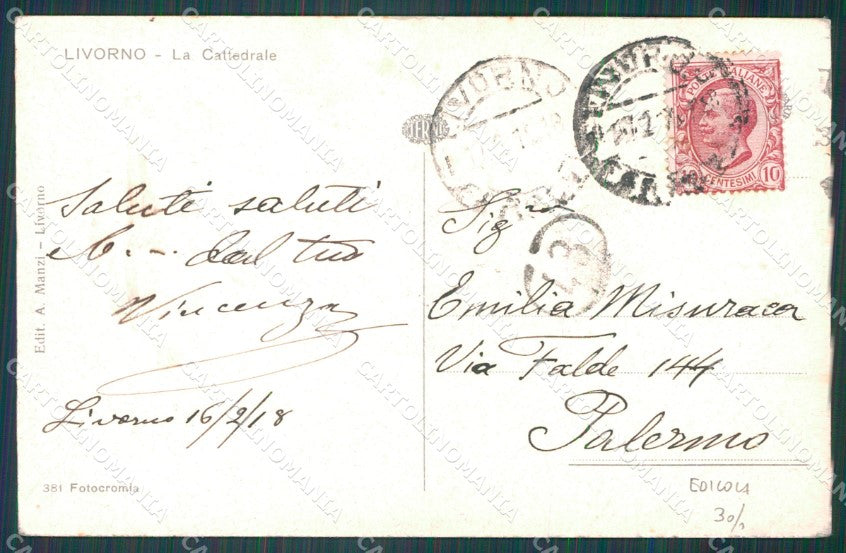 LIVORNO - La Cattedrale
LIVORNO
POSTE ITALIANE
CENTESIMI 10
Edit. A. Manzi. - Livorno
Saluti saluti
dal tuo
Vincenzo
Livorno 16/2/18
Sig.ra
Emilia Misuraca
Via Falde 144
Palermo
381 Fotocromia
EDICOLA
30/
CARTOLINOMANIA